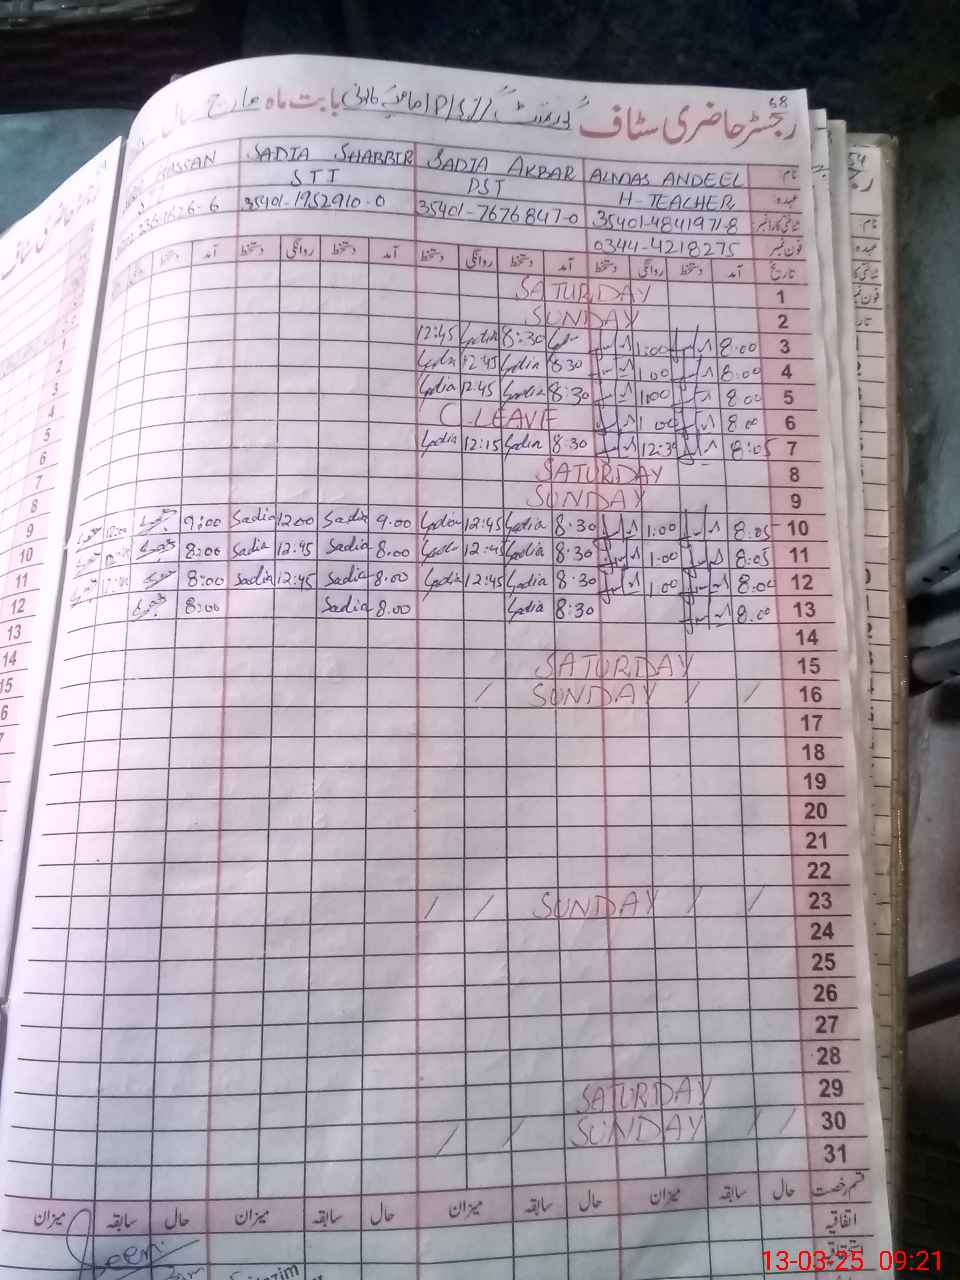 68
رجسٹر حاضری سٹاف گورنمنٹ بابت ماہ مارچ سال
نام ALMAS ANDEEL SADIA AKBAR SADIA SHABBIR HASSAN
عہدہ H-TEACHER PST STI
شناختی کارڈ نمبر 35401-4841971-8 35401-7676847-0 35401-1952910-0
فون نمبر 0344-4218275
تاریخ آمد دستخط روانگی دستخط آمد دستخط روانگی دستخط آمد دستخط روانگی دستخط آمد دستخط
1 SATURDAY
2 SUNDAY
3 8:00 1:00 8:30 Sadia 12:45
4 8:00 1:00 8:30 Sadia 12:45 Sadia
5 8:00 1:00 8:30 Sadia 12:45 Sadia
6 8:00 1:00 C-LEAVE
7 8:05 12:30 8:30 Sadia 12:15 Sadia
8 SATURDAY
9 SUNDAY
10 8:05 1:00 8:30 Sadia 12:45 Sadia 9:00 Sadia 12:00 Sadia 9:00
11 8:05 1:00 8:30 Sadia 12:45 Sadia 8:00 Sadia 12:45 Sadia 8:00
12 8:00 1:00 8:30 Sadia 12:45 Sadia 8:00 Sadia 12:45 Sadia 8:00
13 8:00 8:30 Sadia 8:00 Sadia 8:00
14
15 SATURDAY
16 SUNDAY
17
18
19
20
21
22
23 SUNDAY
24
25
26
27
28
29 SATURDAY
30 SUNDAY
31
قسم رخصت حال سابقہ میزان حال سابقہ میزان حال سابقہ میزان
اتفاقیہ
13-03-25 09:21